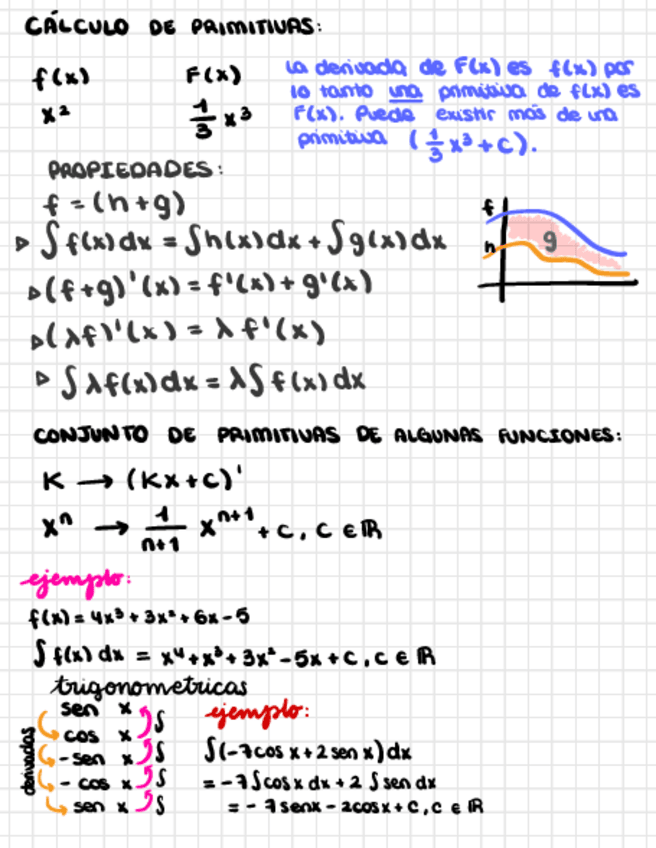 CÁLCULO DE PRIMITIVAS:
f(x) F(x)
x² 1/3 x³
La derivada de F(x) es f(x) por
lo tanto una primitiva de f(x) es
F(x). Puede existir más de una
primitiva (1/3 x³ + C).
PROPIEDADES:
f = (h+g)
▷ ∫ f(x) dx = ∫h(x)dx + ∫g(x)dx
▷ (f+g)'(x) = f'(x) + g'(x)
▷ (λf)'(x) = λ f'(x)
▷ ∫ λf(x)dx = λ∫ f(x)dx
f
h
g
CONJUNTO DE PRIMITIVAS DE ALGUNAS FUNCIONES:
K → (Kx + C)'
xⁿ → 1/n+1 xⁿ⁺¹ + C, C ∈ ℝ
ejemplo:
f(x) = 4x³ + 3x² + 6x - 5
∫ f(x) dx = x⁴ + x³ + 3x² - 5x + C, C ∈ ℝ
trigonometricas
derivadas
sen x ∫
cos x ∫
- sen x ∫
- cos x ∫
sen x
ejemplo:
∫(-7cos x + 2 sen x) dx
= -7∫cos x dx + 2 ∫ sen dx
= - 7senx - 2cosx + C, C ∈ ℝ